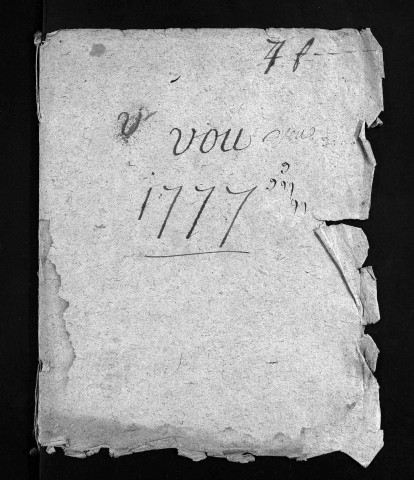 7 f
v vou
1777